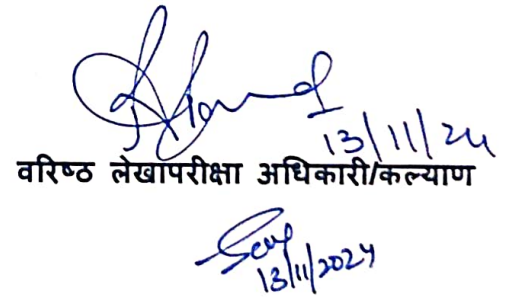 13/11/24
वरिष्ठ लेखापरीक्षा अधिकारी/कल्याण
13/11/2024